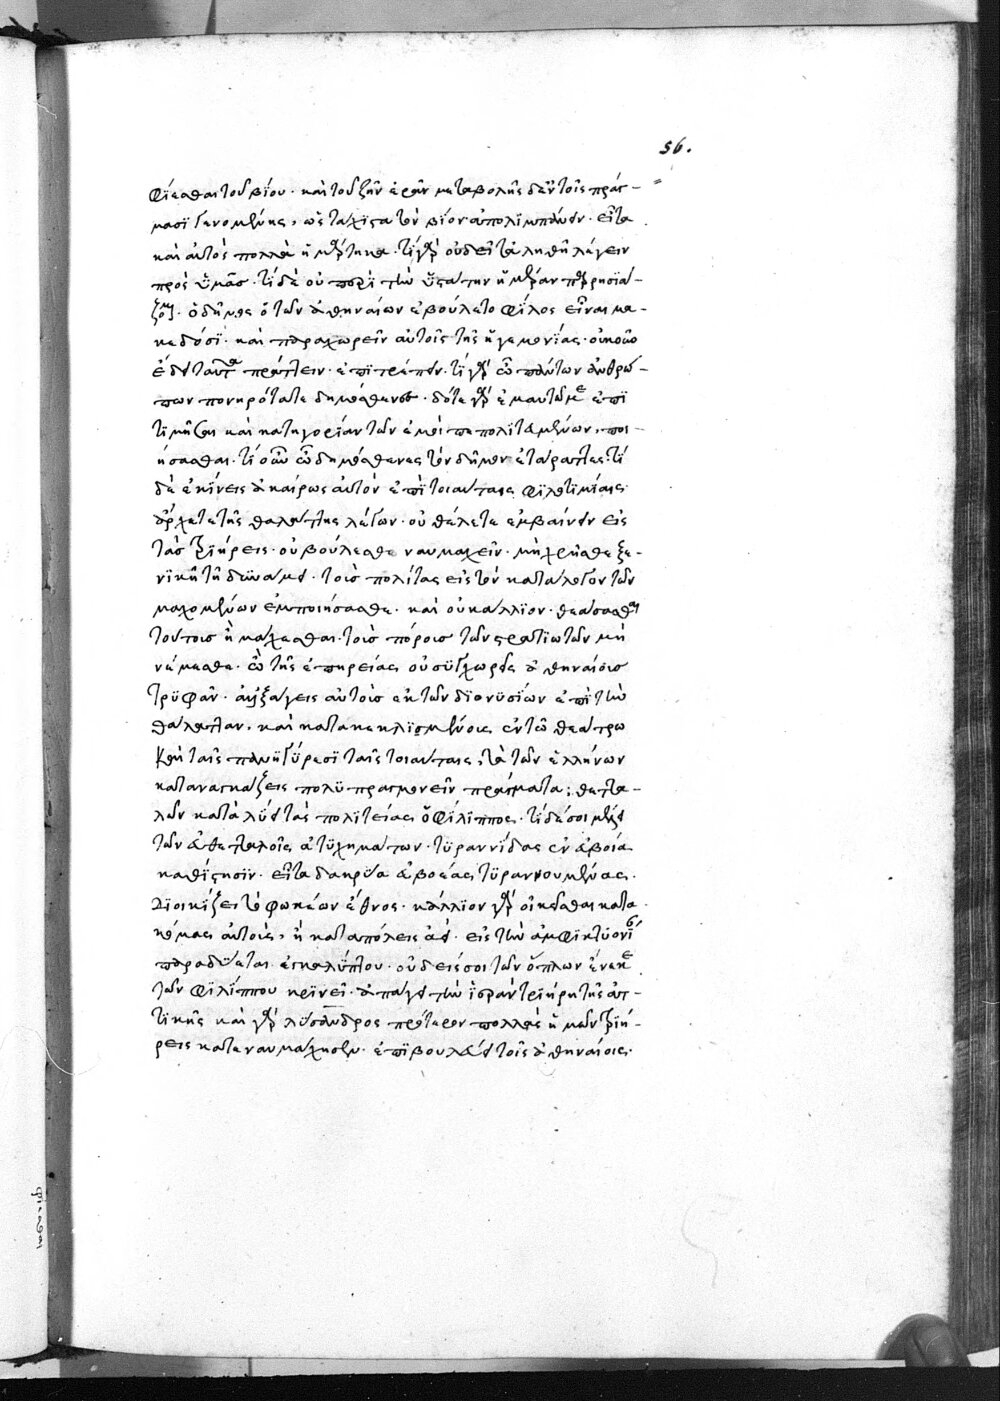 56.
φίεσθαι τοῦ βίου· καὶ τοῦ ζῆν ἐρᾶν μεταβολῆς δ' ἐν τοῖς πράγ-
μασϊ γενομένης, ὡς τάχιστα τὸν βίον ἀπολιμπάνειν· εἶτα
καὶ αὐτὸς πολλὰ ἡμάρτηκα· τί γὰρ οὐ δεῖ τἀληθῆ λέγειν
πρὸς ὑμᾶσ· τί δὲ οὐ περὶ τὴν ὑστάτην ἡμέραν παρρησιά-
ζομαι· ὁ δῆμος ὁ τῶν ἀθηναίων ἐβούλετο φίλος εἶναι μα-
κεδόσϊ· καὶ παραχωρεῖν αὐτοῖς τῆς ἡγεμονίας·
ἔδει ταῦτα πράττειν· ἐπϊτρέπειν· τί γὰρ ὦ πάντων ἀνθρώ-
πων πονηρότατε δημόσθενες· δότε γὰρ ἐμαυτῶ με ἐπϊ
τϊμῆσαι καὶ κατηγορίαν τῶν ἐμοὶ πεπολϊτευμένων, ποι-
ήσασθαι· τί οὖν ὦ δημόσθενες τὸν δῆμον ἐτάραττες· τί
δὲ ἐκίνεις ἀκαίρως αὐτὸν ἐπὶ τοιαύταις φϊλοτϊμίαις·
ἄρχετε τῆς θαλάττης λέγων· οὐ θέλετε ἐμβαίνειν εἰς
τὰσ τρϊήρεις· οὐ βούλεσθε ναυμαχεῖν· μὴ χρῆσθε ξε-
νϊκῆ τῆ δυνάμει· τοὺσ πολίτας εἰς τὸν κατάλογον τῶν
μαχομένων ἐμποιήσασθε· καὶ οὐ κάλλϊον· θεάσασθαι
τούτοισ ἢ μάχεσθαι· τοὺσ πόρουσ τῶν στρατϊωτῶν μὴ
νέμεσθε· ὦ τῆς ἐπηρείας οὐ συγχωρεῖς ἀθηναίοισ
τρϋφᾶν· ἀλλ' ἐξάγεις αὐτοὺσ ἐκ τῶν δϊονϋσίων ἐπὶ τὴν
θάλατταν, καὶ κατακεκλϊσμένους ἐν τῶ θεάτρω
καὶ ταῖς πανηγύρεσϊ ταῖς τοιαύταις, τὰ τῶν ἑλλήνων
καταναγκάζεις πολϋπραγμονεῖν πράγματα· θεττα-
λῶν καταλύει τὰς πολϊτείας ὁ φίλϊππος· τί δέ σοι μέλει
τῶν ἐν θετταλοῖς ἀτϋχημάτων· τϋραννίδας ἐν εὐβοία
καθίστησϊν· εἶτα δακρύεις εὐβοέας τϋραννουμένους.
διοικίζει τὸ φωκέων ἔθνος· κάλλϊον γὰρ οἰκεῖσθαι κατὰ
κώμας αὐτοὺς, ἢ κατὰ πόλεις ἀεί· εἰς τὴν ἀμφϊκτϋονί
παραδύεται ἐγκαλύπτου· οὐδείς σοι τῶν ὅπλων ἕνεκε
τῶν φϊλίππου κρϊνεῖ· ἀπάγει τὴν ἱερὰν τρϊήρη τῆς ἀτ-
τϊκῆς καὶ γὰρ λύσανδρος πρότερον πολλὰς ἡμῶν τρϊή-
ρεις καταναυμαχήσας· ἐπϊβουλεύει τοῖς ἀθηναίοις·
φίεσθαι